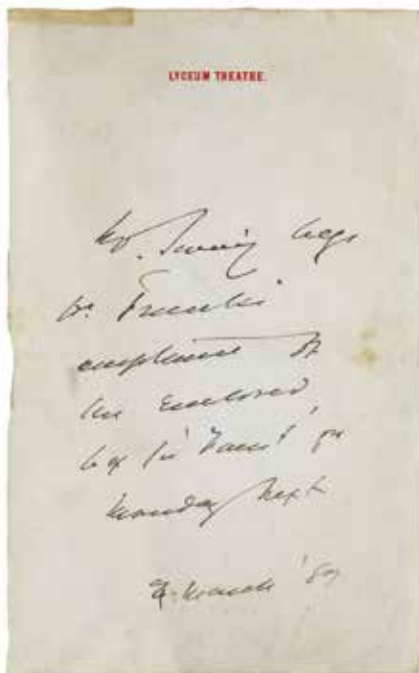 LYCEUM THEATRE.
Mr. Irving begs
acceptance of
the enclosed
box for 'Faust' for
Monday next
March '87